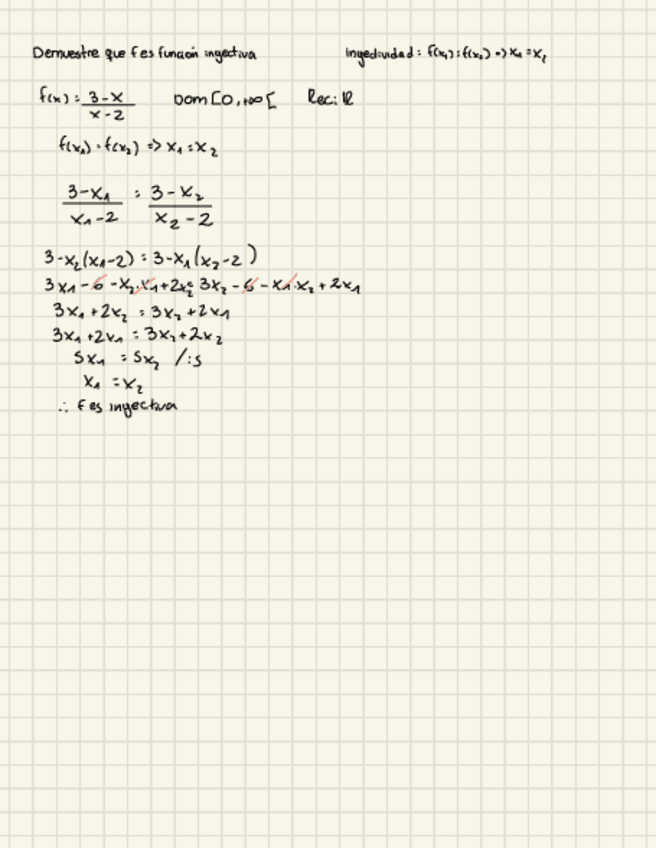 Demuestre que f es función inyectiva
Inyectividad: f(x₁) = f(x₂) => x₁ = x₂
f(x) = (3-x)/(x-2) Dom [0,+∞[ Rec: ℝ
f(x₁) = f(x₂) => x₁ = x₂
(3-x₁)/(x₁-2) = (3-x₂)/(x₂-2)
3-x₂(x₁-2) = 3-x₁(x₂-2)
3x₁ - 6 - x₂·x₁ + 2x₂ = 3x₂ - 6 - x₁·x₂ + 2x₁
3x₁ + 2x₂ = 3x₂ + 2x₁
3x₁ + 2x₁ = 3x₂ + 2x₂
5x₁ = 5x₂ /:5
x₁ = x₂
∴ f es inyectiva